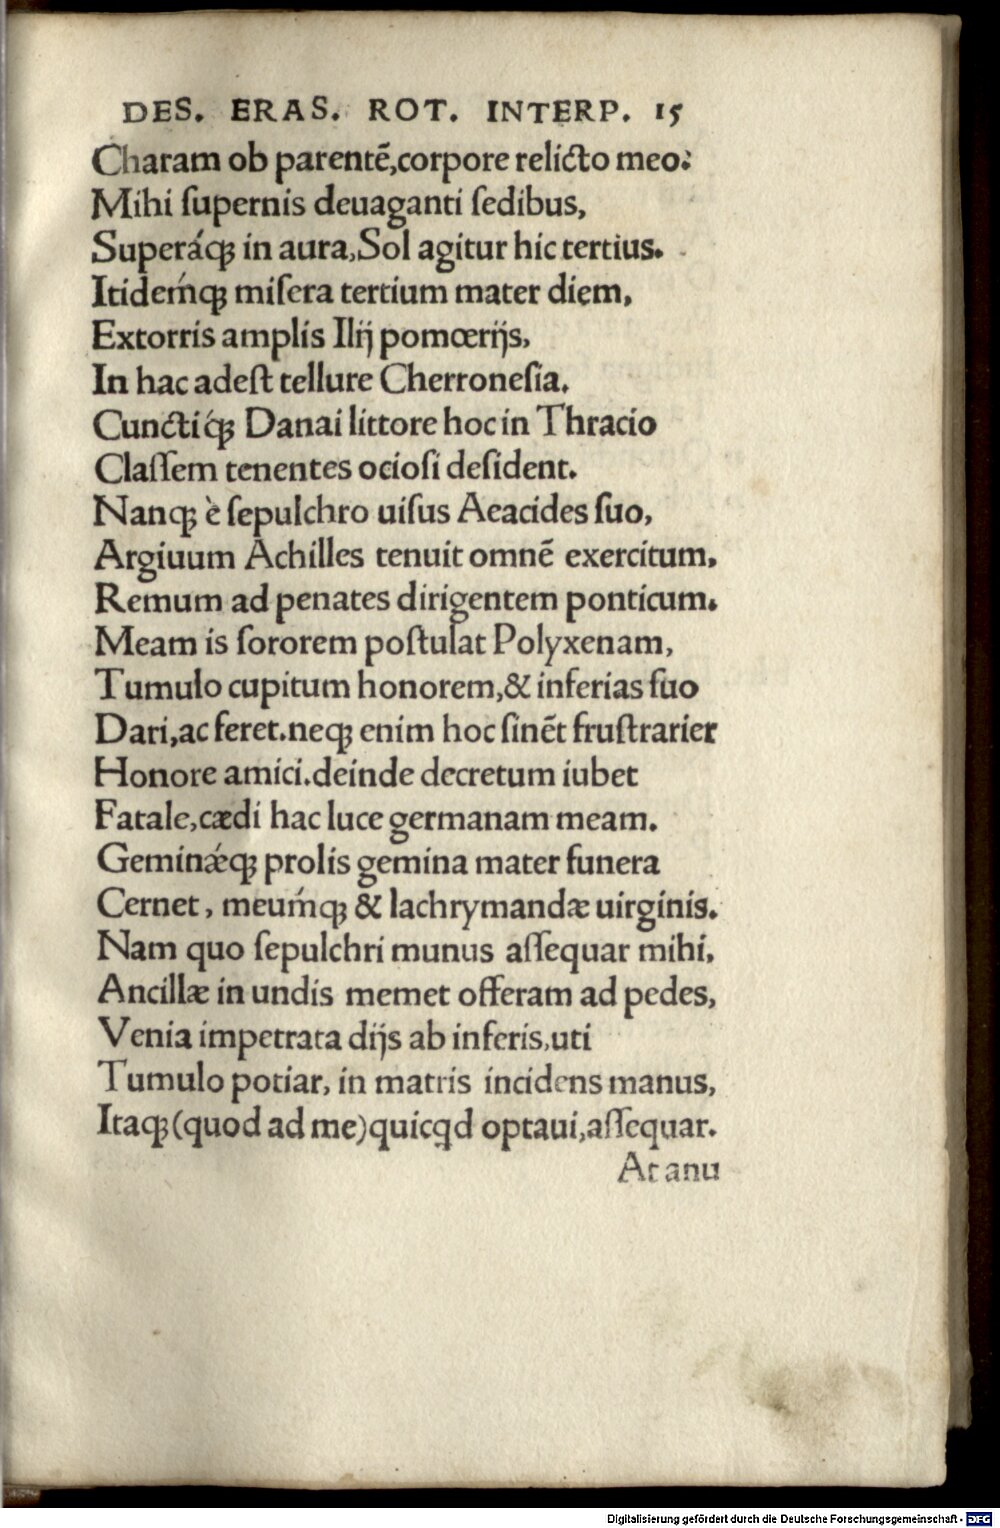 DES. ERAS. ROT. INTERP. 15
Charam ob parentē,corpore relicto meo:
Mihi ſupernis deuaganti ſedibus,
Superáqꝫ in aura,Sol agitur hic tertius.
Itideḿqꝫ miſera tertium mater diem,
Extorris amplis Ilij pomœrijs,
In hac adeſt tellure Cherroneſia.
Cunctíqꝫ Danai littore hoc in Thracio
Claſſem tenentes ocioſi deſident.
Nanqꝫ è ſepulchro uiſus Aeacides ſuo,
Argiuum Achilles tenuit omnē exercitum,
Remum ad penates dirigentem ponticum.
Meam is ſororem poſtulat Polyxenam,
Tumulo cupitum honorem,& inferias ſuo
Dari,ac feret.neqꝫ enim hoc ſinēt fruſtrarier
Honore amici.deinde decretum iubet
Fatale,cædi hac luce germanam meam.
Geminǽqꝫ prolis gemina mater funera
Cernet, meuḿqꝫ & lachrymandæ uirginis.
Nam quo ſepulchri munus aſſequar mihi,
Ancillæ in undis memet offeram ad pedes,
Venia impetrata dijs ab inferis,uti
Tumulo potiar, in matris incidens manus,
Itaqꝫ(quod ad me)quicꝗd optaui,aſſequar.
At anu
Digitalisierung gefördert durch die Deutsche Forschungsgemeinschaft - DFG